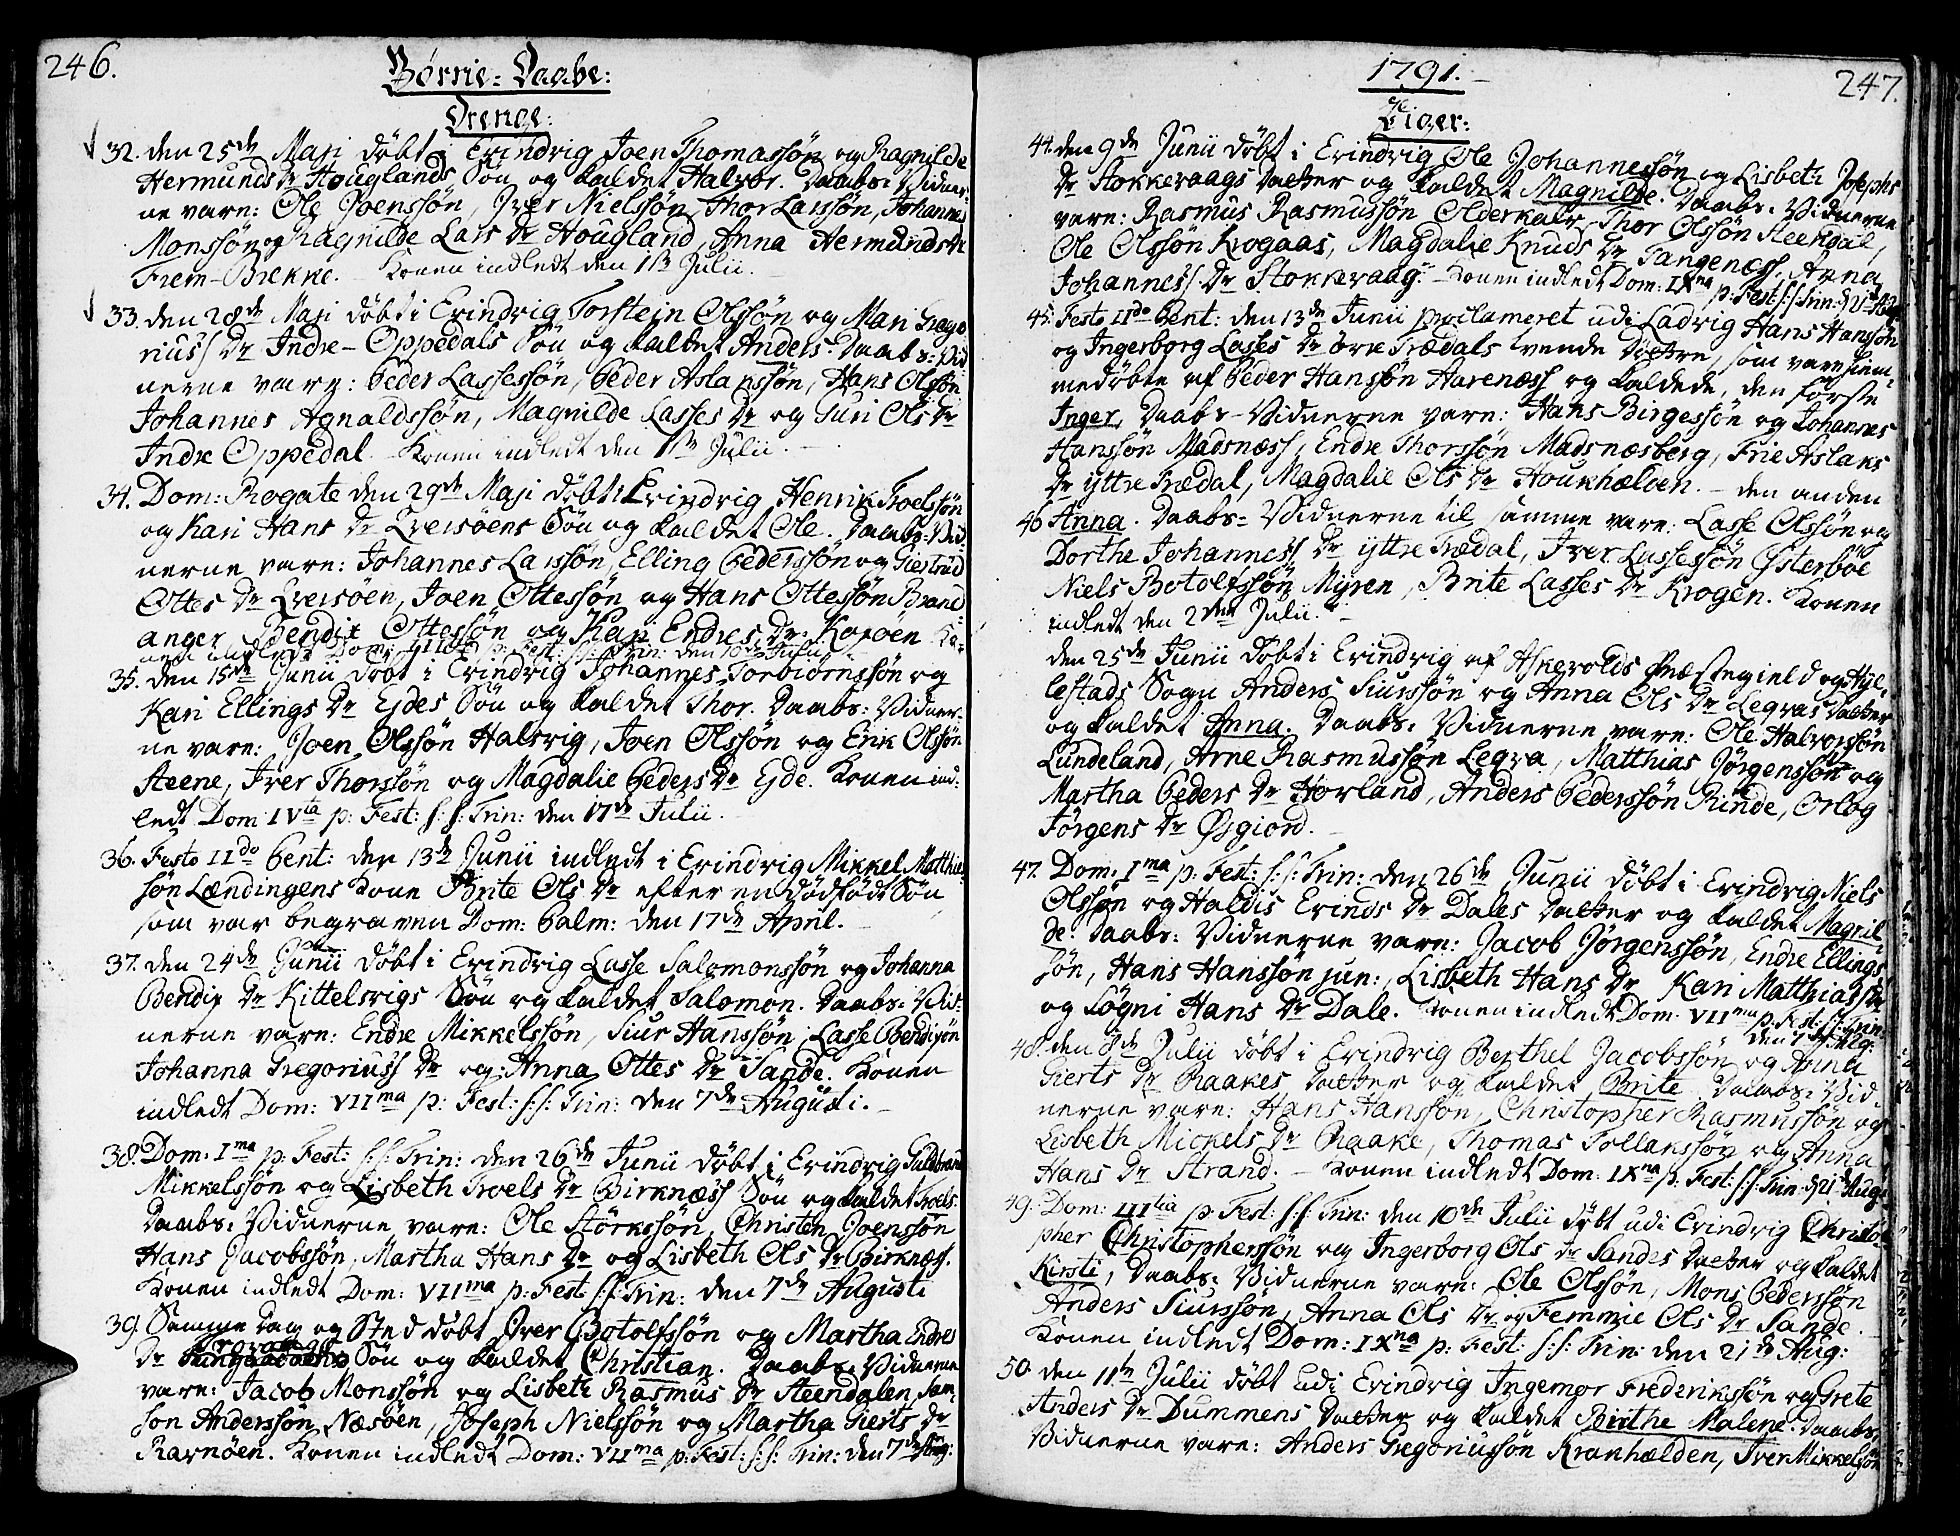 246.
Børne-Daabe:
Drenge:
32. den 25de Maji døbt i Evindvig Joen Thomassøn og Ragnilde
Hermunds Dr Houglands Søn og kaldet Halvor. Daabs-Vidner-
ne vare: Ole Joenssøn, Iver Nielssøn, Thor Larssøn, Johannes
Monssøn og Ragnilde Lars Dr Hougland, Anna Hermunds Dr
Frem-Brekke. Konen indledt den 1te Julii.
33. den 28de Maji døbt i Evindvig Torstein Olssøn og Mari Grego
riuss Dr Indre-Oppedals Søn og kaldet Anders. Daabs-Vid
nerne vare: Peder Lassessøn, Peder Aslakssøn, Hans Olssøn
Johannes Agnaldssøn, Magnilde Lasses Dr og Guri Ols Dr
Indre Oppedal. Konen indledt den 1te Julii.
34. Dom: Rogate den 29de Maji døbt i Evindvig Henrik Troelssøn
og Kari Hans Dr Qversøens Søn og kaldet Ole. Daabs-Vid
nerne vare: Johannes Larssøn, Elling Pederssøn og Giertrud
Ottes Dr Qversøen, Joen Ottessøn og Hans Ottessøn Brand
anger, Bendix Ottessøn og Endres Dr Koxøen Ko-
nen indledt Dom: IIItia p: Fest: s: s: Trin: den 10de Julii
35. den 15de Junii døbt i Evindvig Johannes Torbiørnssøn og
Kari Ellings Dr Ejdes Søn og kaldet Thor. Daabs-Vidner-
ne vare: Joen Olssøn Halsvig, Joen Olssøn og Erik Olssøn
Steene, Iver Thorssøn og Magdalie Peders Dr Ejde. Konen ind-
ledt Dom: IVta p: Fest: s: s: Trin: den 17de Julii.
36. Festo IIdo Pent: den 13de Junii indledt i Evindvig Mikkel Matthis
søn Lændingens Kone Brite Ols Dr efter en dødfødt Søn
som var begraven Dom: Palm: den 17de April.
37. den 24de Junii døbt i Evindvig Lasse Salomonssøn og Johanna
Bendix Dr Kittelsvigs Søn og kaldet Salomon. Daabs-Vid-
nerne vare: Endre Mikkelssøn, Siur Hanssøn, Lasse Bendixøn
Johanna Gregoriuss Dr og Anna Ottes Dr Sande. Konen
indledt Dom: VIIma p: Fest: s: s: Trin: den 7de Augusti.
38. Dom: Ima p: Fest: s: s: Trin: den 26de Junii døbt i Evindvig Guldbrand
Mikkelssøn og Lisbeth Troels Dr Birknæss Søn og kaldet Troels.
Daabs-Vidnerne vare: Ole Størkssøn, Christen Joenssøn
Hans Jacobssøn, Martha Hans Dr og Lisbeth Ols Dr Birknæs.
Konen indledt Dom: VIIma p: Fest: s: s: Trin: den 7de Augusti
39. Samme Dag og Sted døbt Iver Botolfssøn og Martha Endres
Dr Søn og kaldet Christian. Daabs-Vidnerne
vare: Jacob Monssøn og Lisbeth Rasmus Dr Steendalen, Sam-
son Anderssøn Næsøen, Joseph Nielssøn og Martha Gierts Dr
Ravnøen. Konen indledt Dom: VIIma p: Fest: s: s: Trin: den 7de Aug:
1791.
247.
Piger:
44. den 9de Junii døbt i Evindvig Ole Johannessøn og Lisbeth Josephs
Dr Stokkevaags Datter og kaldet Magnilde. Daabs-Vidnerne
vare: Rasmus Rasmussøn Olderkalv, Thor Olssøn Steendal,
Ole Olssøn Krogaas, Magdalie Knuds Dr Tangenæss, Anna
Johanness Dr Stokkevaag. Konen indledt Dom: IXna p: Fest: s: s: Trin: d 21de Aug
45. Festo IIdo Pent: den 13de Junii proclameret udi Ladvig Hans Hanssøn
og Ingerborg Lasses Dr øvre Trædals tvende Døttre, som vare hiem-
medøbte af Peder Hanssøn Harenæss og kaldede, den første
Inger, Daabs-Vidnerne vare: Hans Birgessøn og Johannes
Hanssøn Madsnæss, Endre Thorssøn Madsnæsberg, Frie Aslaks
Dr yttre Trædal, Magdalie Ols Dr Houkhælden. – den anden
46 Anna. Daabs-Vidnerne til samme vare: Lasse Olssøn og
Dorthe Johanness Dr yttre Trædal, Iver Lassessøn Østerbøe
Niels Botolfssøn Myren, Brite Lasses Dr Krogen. Konen
indledt den 2den Julii.
den 25de Junii døbt i Evindvig af Askevolds Præstegield og Hyl-
lestads Sogn Anders Siurssøn og Anna Ols Dr Legras Datter
og kaldet Anna. Daabs-Vidnerne vare: Ole Halvorssøn
Lundeland, Arne Rasmussøn Legra, Matthias Jørgenssøn og
Martha Peders Dr Hovland, Anders Pederssøn Rinde, Orlog
Jørgens Dr Øsgiord.
47. Dom: Ima p: Fest: s: s: Trin: den 26de Junii døbt i Evindvig Niels
Olssøn og Haldis Erinds Dr Dales Datter og kaldet Magnil-
de. Daabs-Vidnerne vare: Jacob Jørgenssøn, Endre Ellings
søn, Hans Hanssøn jun:, Lisbeth Hans Dr Kari Matthiass Dr
og Søgni Hans Dr Dale. Konen indledt Dom: VIIma p: Fest: s: s: Trin:
den 7de Aug:
48. den 8de Julii døbt i Evindvig Berthel Jacobssøn og Anna
Gierts Dr Raakes Datter og kaldet Brite. Daabs-Vid-
nerne vare: Hans Hanssøn, Christopher Rasmussøn og
Lisbeth Mickels Dr Raake, Thomas Tollakssøn og Anna
Hans Dr Strand. – Konen indledt Dom: IXna p: Fest: s: s: Trin: d 21de Aug:
49. Dom: IIItia p: Fest: s: s: Trin: den 10de Julii døbt udi Evindvig Christo-
pher Christopherssøn og Ingerborg Ols Dr Sandes Datter og kaldet
Kirsti, Daabs-Vidnerne vare: Ole Olssøn, Mons Pederssøn
Anders Siurssøn, Anna Ols Dr og Femmie Ols Dr Sande.
Konen indledt Dom: IXna p: Fest: s: s: Trin: den 21de Aug:
50. den 11te Julii døbt udi Evindvig Ingemor Frederikssøn og Grete
Anders Dr Dummens Datter og kaldet Birthe Malene. Daabs-
Vidnerne vare: Anders Gregoriussøn Kranhælden, Iver Mikkelssøn